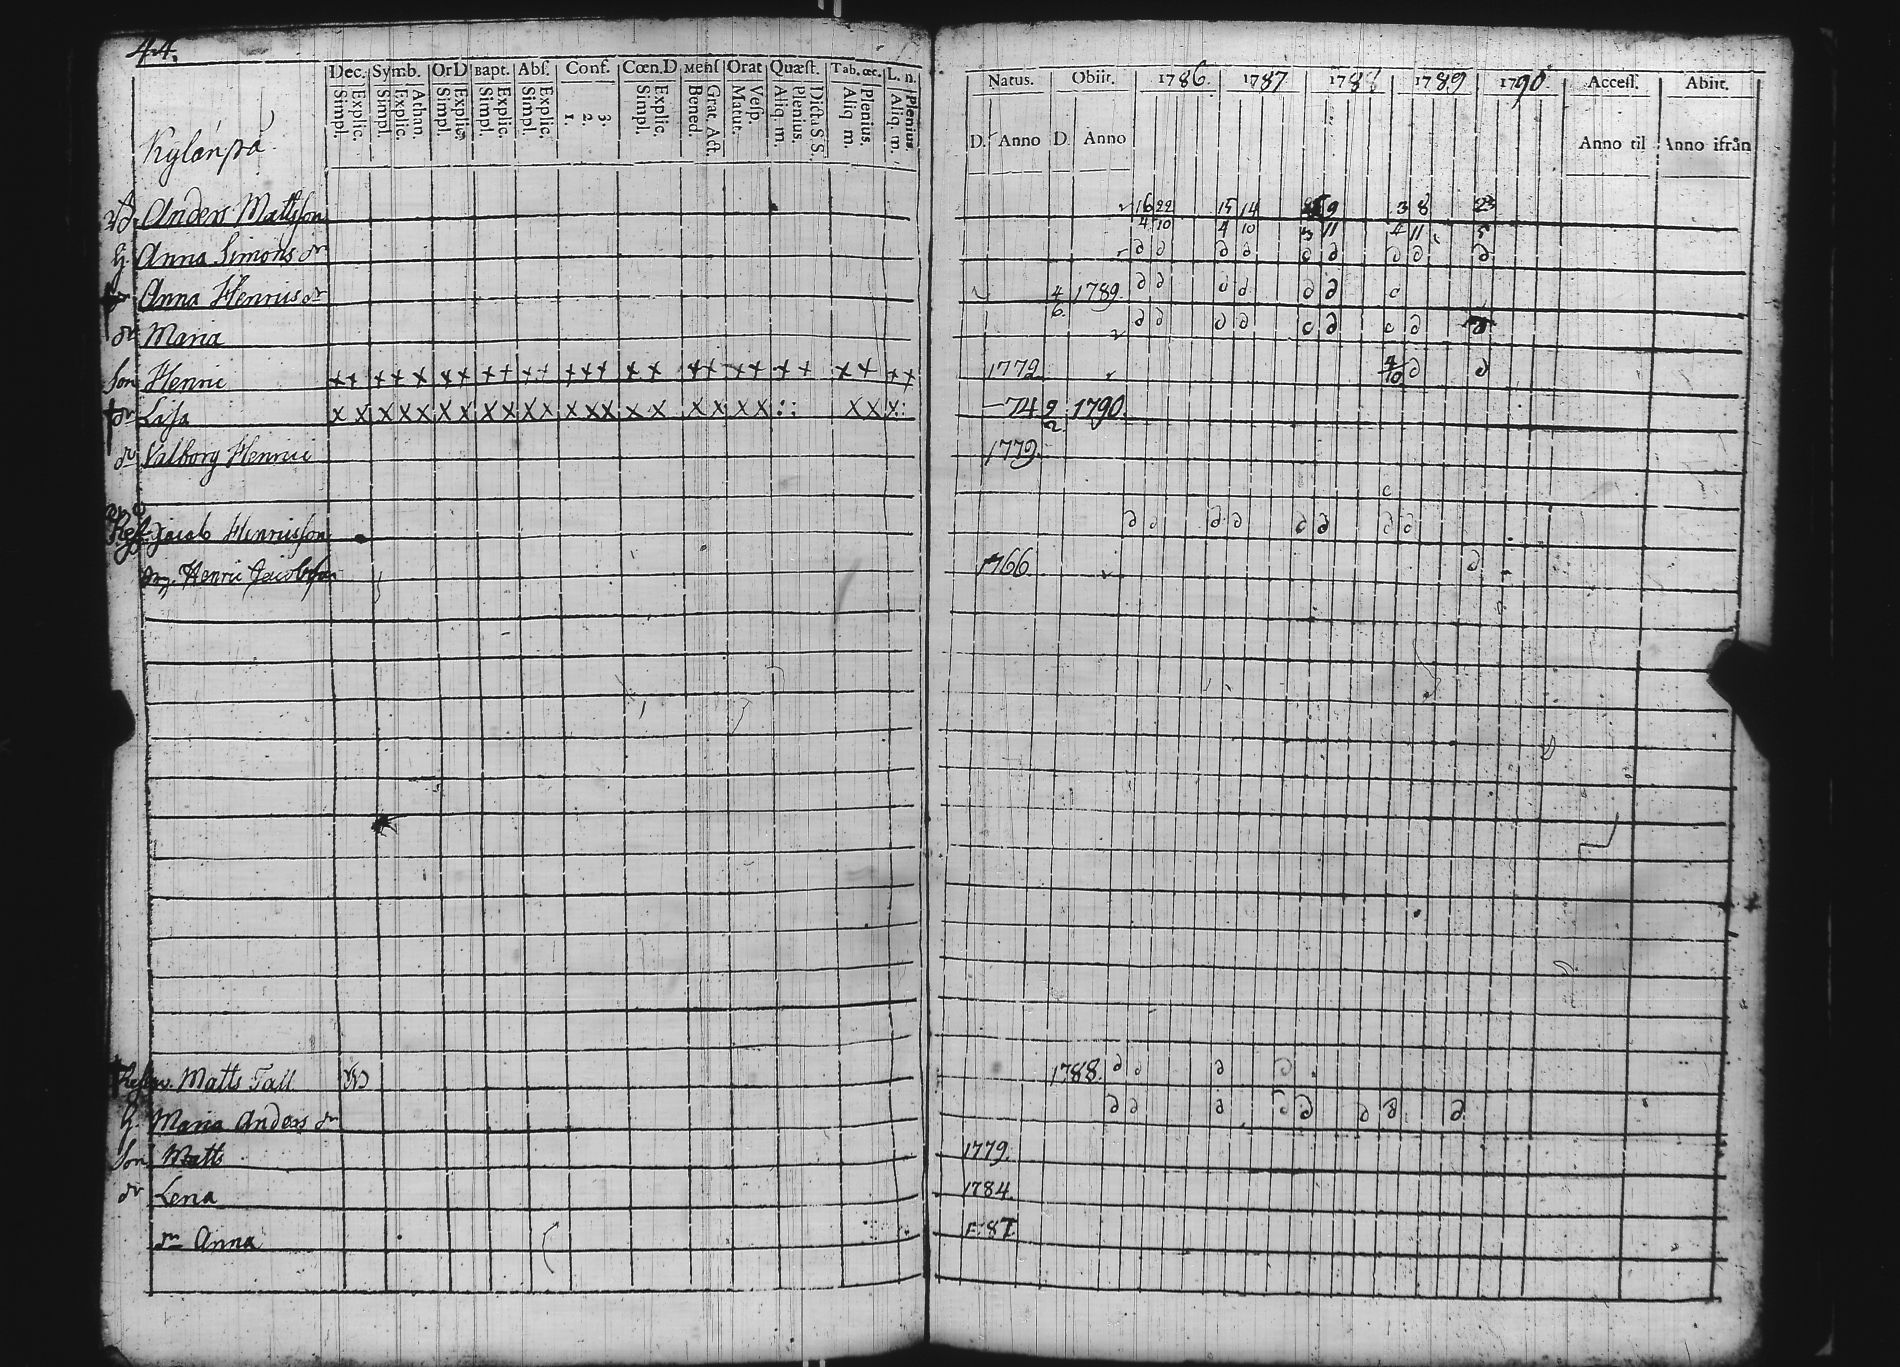 44.
Dec. Symb. Or D Bapt. Abs. Conf. Cœn. D Mens Orat Quæst. Tab. œc. L. n.
Simpl. Explic. Simpl. Explic. Athan. Simpl. Explic. Simpl. Explic. Simpl. Explic. 1. 2. 3. Simpl. Explic. Bened. Grat. Act. Matut. Vesp. Aliq. m. Plenius. Dicta S. S. Aliq. m. Plenius. Aliq. m. Plenius.
Natus. Obiit. 1786. 1787 1788 1789 1790 Access. Abiit.
D. Anno D. Anno Anno til Anno ifrån
Kylänpä
Anders Mattsson 16/4 22/10 15/4 14/10 9/11 3/4 8/11 23/5
h. Anna Simons dr ∂ ∂ ∂ ∂ ∂ ∂ ∂ ∂ ∂
Anna Henrics dr 4/6 1789. ∂ ∂ ∂ ∂ ∂ ∂
dr Maria ∂ ∂ ∂ ∂ ∂ ∂ ∂
Son Henric ++ +++ ++ ++ ++ +++ ++ ++ ++ ++ ++ ++ 1772 4/10 ∂ ∂
† dr Lisa xx xxx xx xx xx xxx xx xx xx :: xx x: —74 9/2 1790.
dr Valborg Henrici 1779.
Jacob Henricsson ∂ ∂ ∂ ∂ ∂ ∂ ∂ ∂
drg. Henric Jacobsson 1766 ∂
Matts Tall 1788. ∂ ∂ ∂ ∂
h. Maria Anders dr ∂ ∂ ∂ ∂ ∂ ∂ ∂ ∂
Son Matts 1779.
dr Lena 1784.
dr Anna 87.